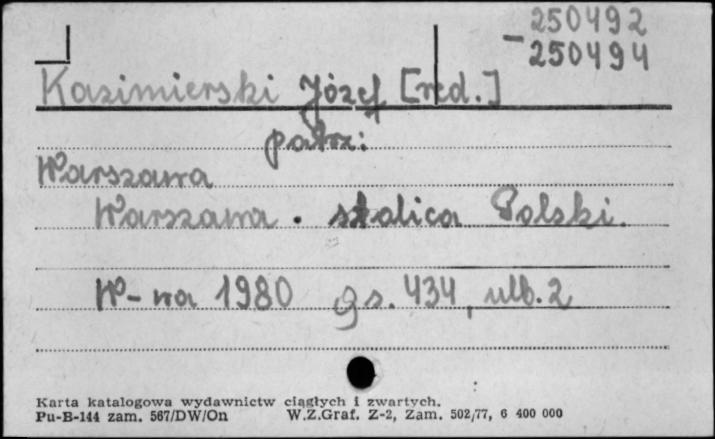 250492
-250494
Kazimierski Józef [red.]
patrz:
Warszawa
Warszawa. stolica Polski.
W-wa 1980 s. 434, nlb. 2
Karta katalogowa wydawnictw ciągłych i zwartych.
Pu-B-144 zam. 567/DW/On W.Z.Graf. Z-2, Zam. 502/77, 6 400 000